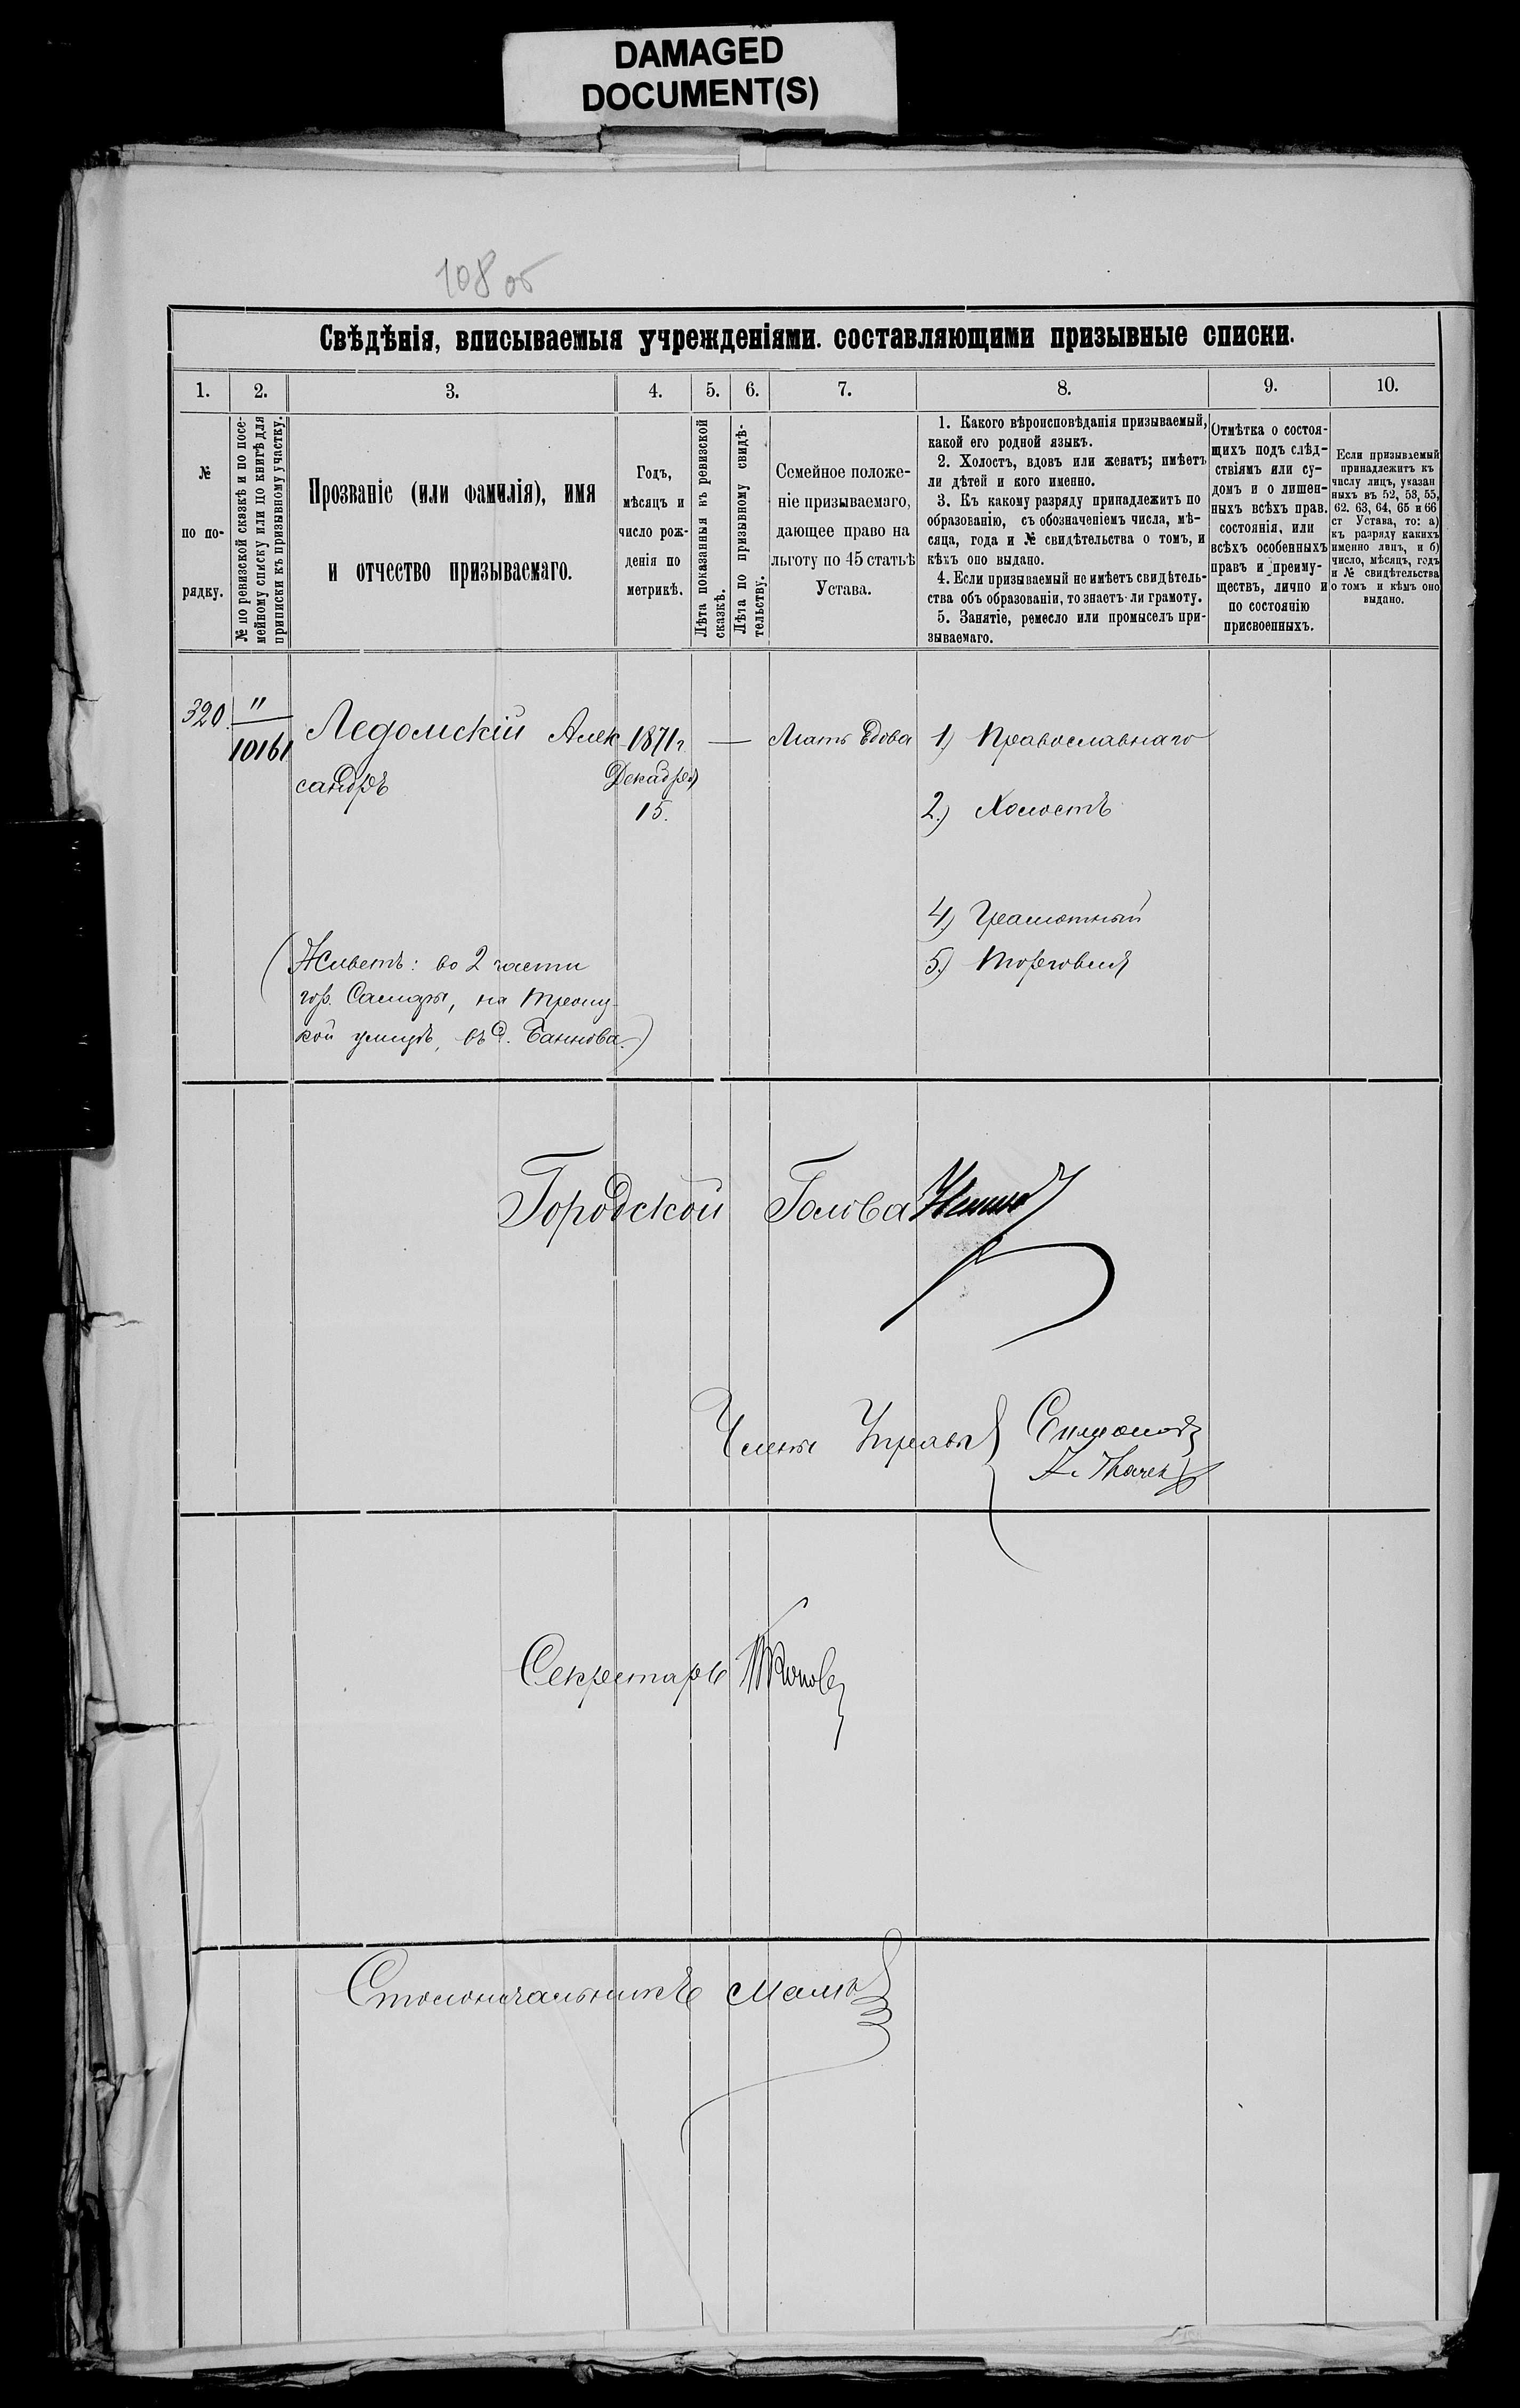 DAMAGED
DOCUMENT(S)
108 об
Свѣдѣнія, вписываемыя учрежденіями. составляющими призывные списки.
1.
2.
3.
4.
5.
6.
7.
8.
9.
10.
№
по по-
рядку.
№ по ревизской сказкѣ и по посе-
мейному списку или по книгѣ для
приписки къ призывному участку.
Прозваніе (или фамилія), имя
и отчество призываемаго.
Годъ,
мѣсяцъ и
число рож-
денія по
метрикѣ.
Лѣта показанныя въ ревизской
сказкѣ.
Лѣта по призывному свидѣ-
тельству.
Семейное положе-
ніе призываемаго,
дающее право на
льготу по 45 статьѣ
Устава.
1. Какого вѣроисповѣданія призываемый,
какой его родной языкъ.
2. Холостъ, вдовъ или женатъ; имѣетъ
ли дѣтей и кого именно.
3. Къ какому разряду принадлежитъ по
образованію, съ обозначеніемъ числа, мѣ-
сяца, года и № свидѣтельства о томъ, и
кѣмъ оно выдано.
4. Если призываемый не имѣетъ свидѣтель-
ства объ образованіи, то знаетъ-ли грамоту.
5. Занятіе, ремесло или промыселъ при-
зываемаго.
Отмѣтка о состоя-
щихъ подъ слѣд-
ствіямъ или су-
домъ и о лишен-
ныхъ всѣхъ прав.
состоянія, или
всѣхъ особенныхъ
правъ и преиму-
ществъ, лично и
по состоянію
присвоенныхъ.
Если призываемый
принадлежитъ къ
числу лицъ, указан
ныхъ въ 52, 53, 55,
62. 63, 64, 65 и 66
ст Устава, то: а)
къ разряду какихъ
именно лицъ, и б)
число, мѣсяцъ, годъ
и № свидѣтельства
о томъ и кѣмъ оно
выдано.
320. " 10161
Ледомскій Алек-
сандръ
1871 г
Декабря
15.
—
Мать вдова
1) Православнаго
2.) Холостъ
4) Грамотный
5.) Торговля
(Живетъ: во 2 части
гор. Самары, на Троиц-
кой улицѣ, въ д. Баннова.)
Городской Голова
Члены Управы
Секретарь
Столоначальникъ